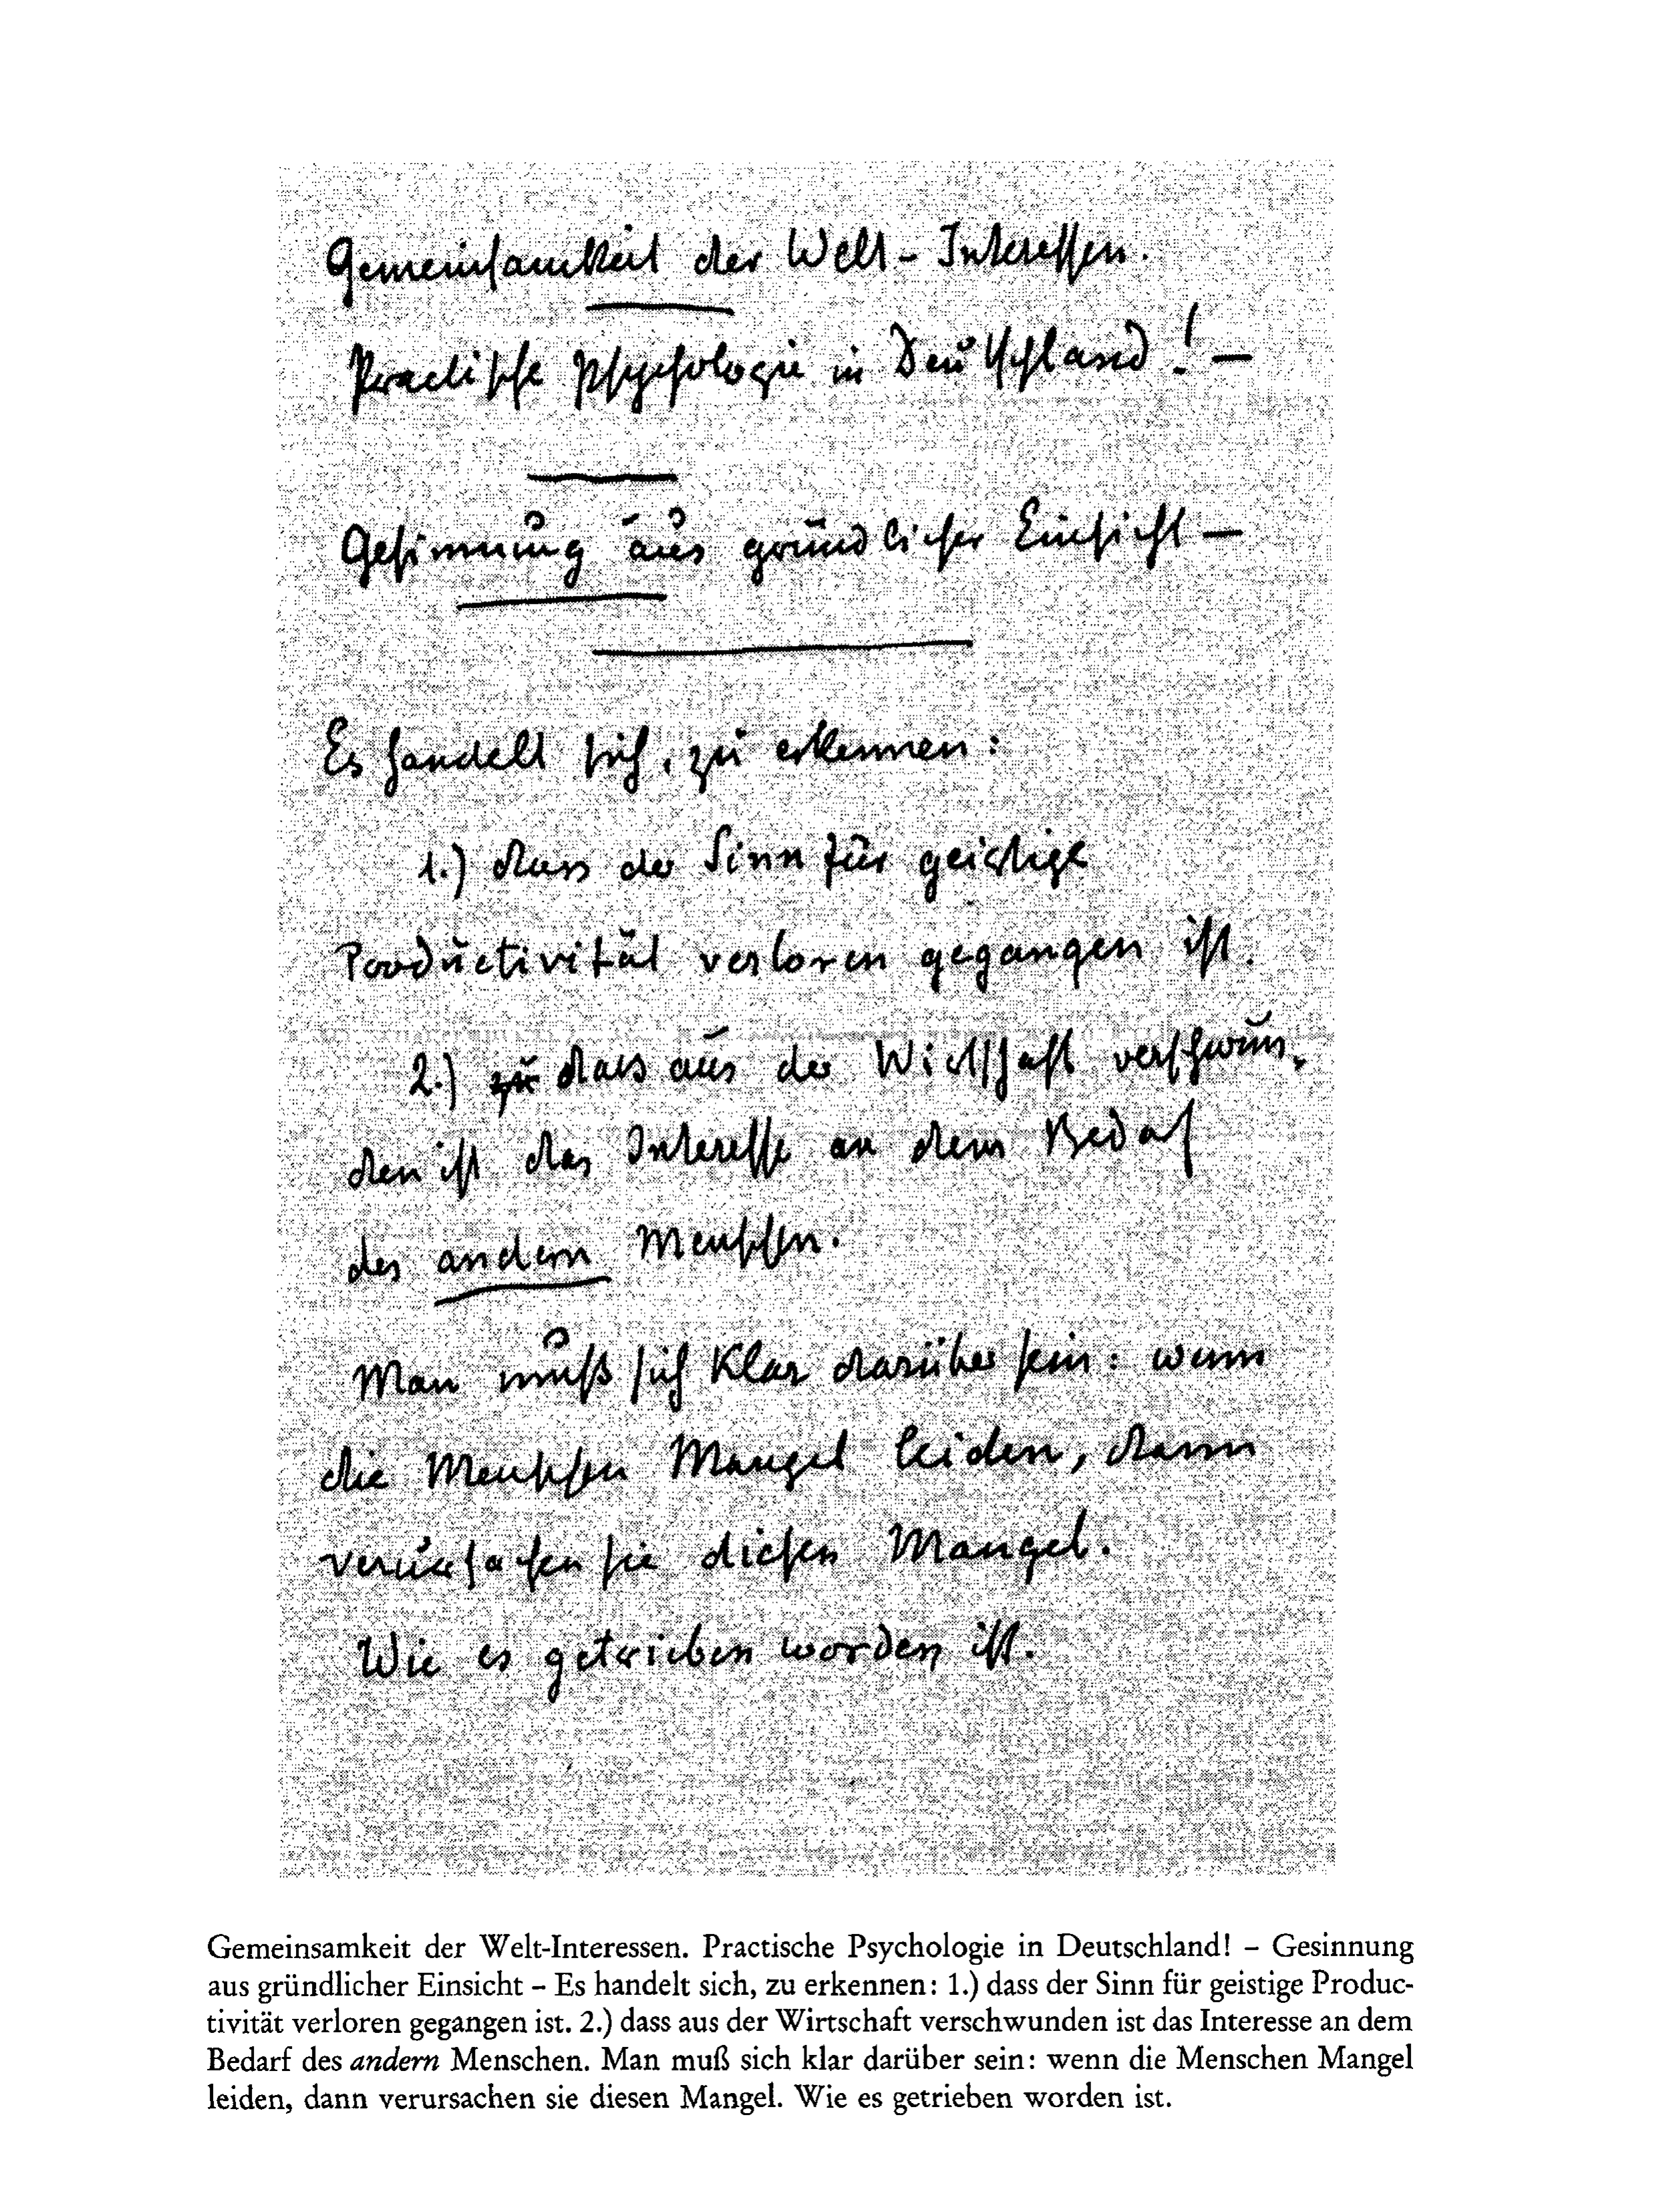 Gemeinsamkeit der Welt-Interessen.
Practische Psychologie in Deutschland! —
Gesinnung aus gründlicher Einsicht —
Es handelt sich, zu erkennen:
1.) dass der Sinn für geistige
Productivität verloren gegangen ist.
2.) zu dass aus der Wirtschaft verschwun-
den ist das Interesse an dem Bedarf
des andern Menschen.
Man muß sich klar darüber sein: wenn
die Menschen Mangel leiden, dann
verursachen sie diesen Mangel.
Wie es getrieben worden ist.
Gemeinsamkeit der Welt-Interessen. Practische Psychologie in Deutschland! – Gesinnung
aus gründlicher Einsicht – Es handelt sich, zu erkennen: 1.) dass der Sinn für geistige Produc-
tivität verloren gegangen ist. 2.) dass aus der Wirtschaft verschwunden ist das Interesse an dem
Bedarf des andern Menschen. Man muß sich klar darüber sein: wenn die Menschen Mangel
leiden, dann verursachen sie diesen Mangel. Wie es getrieben worden ist.